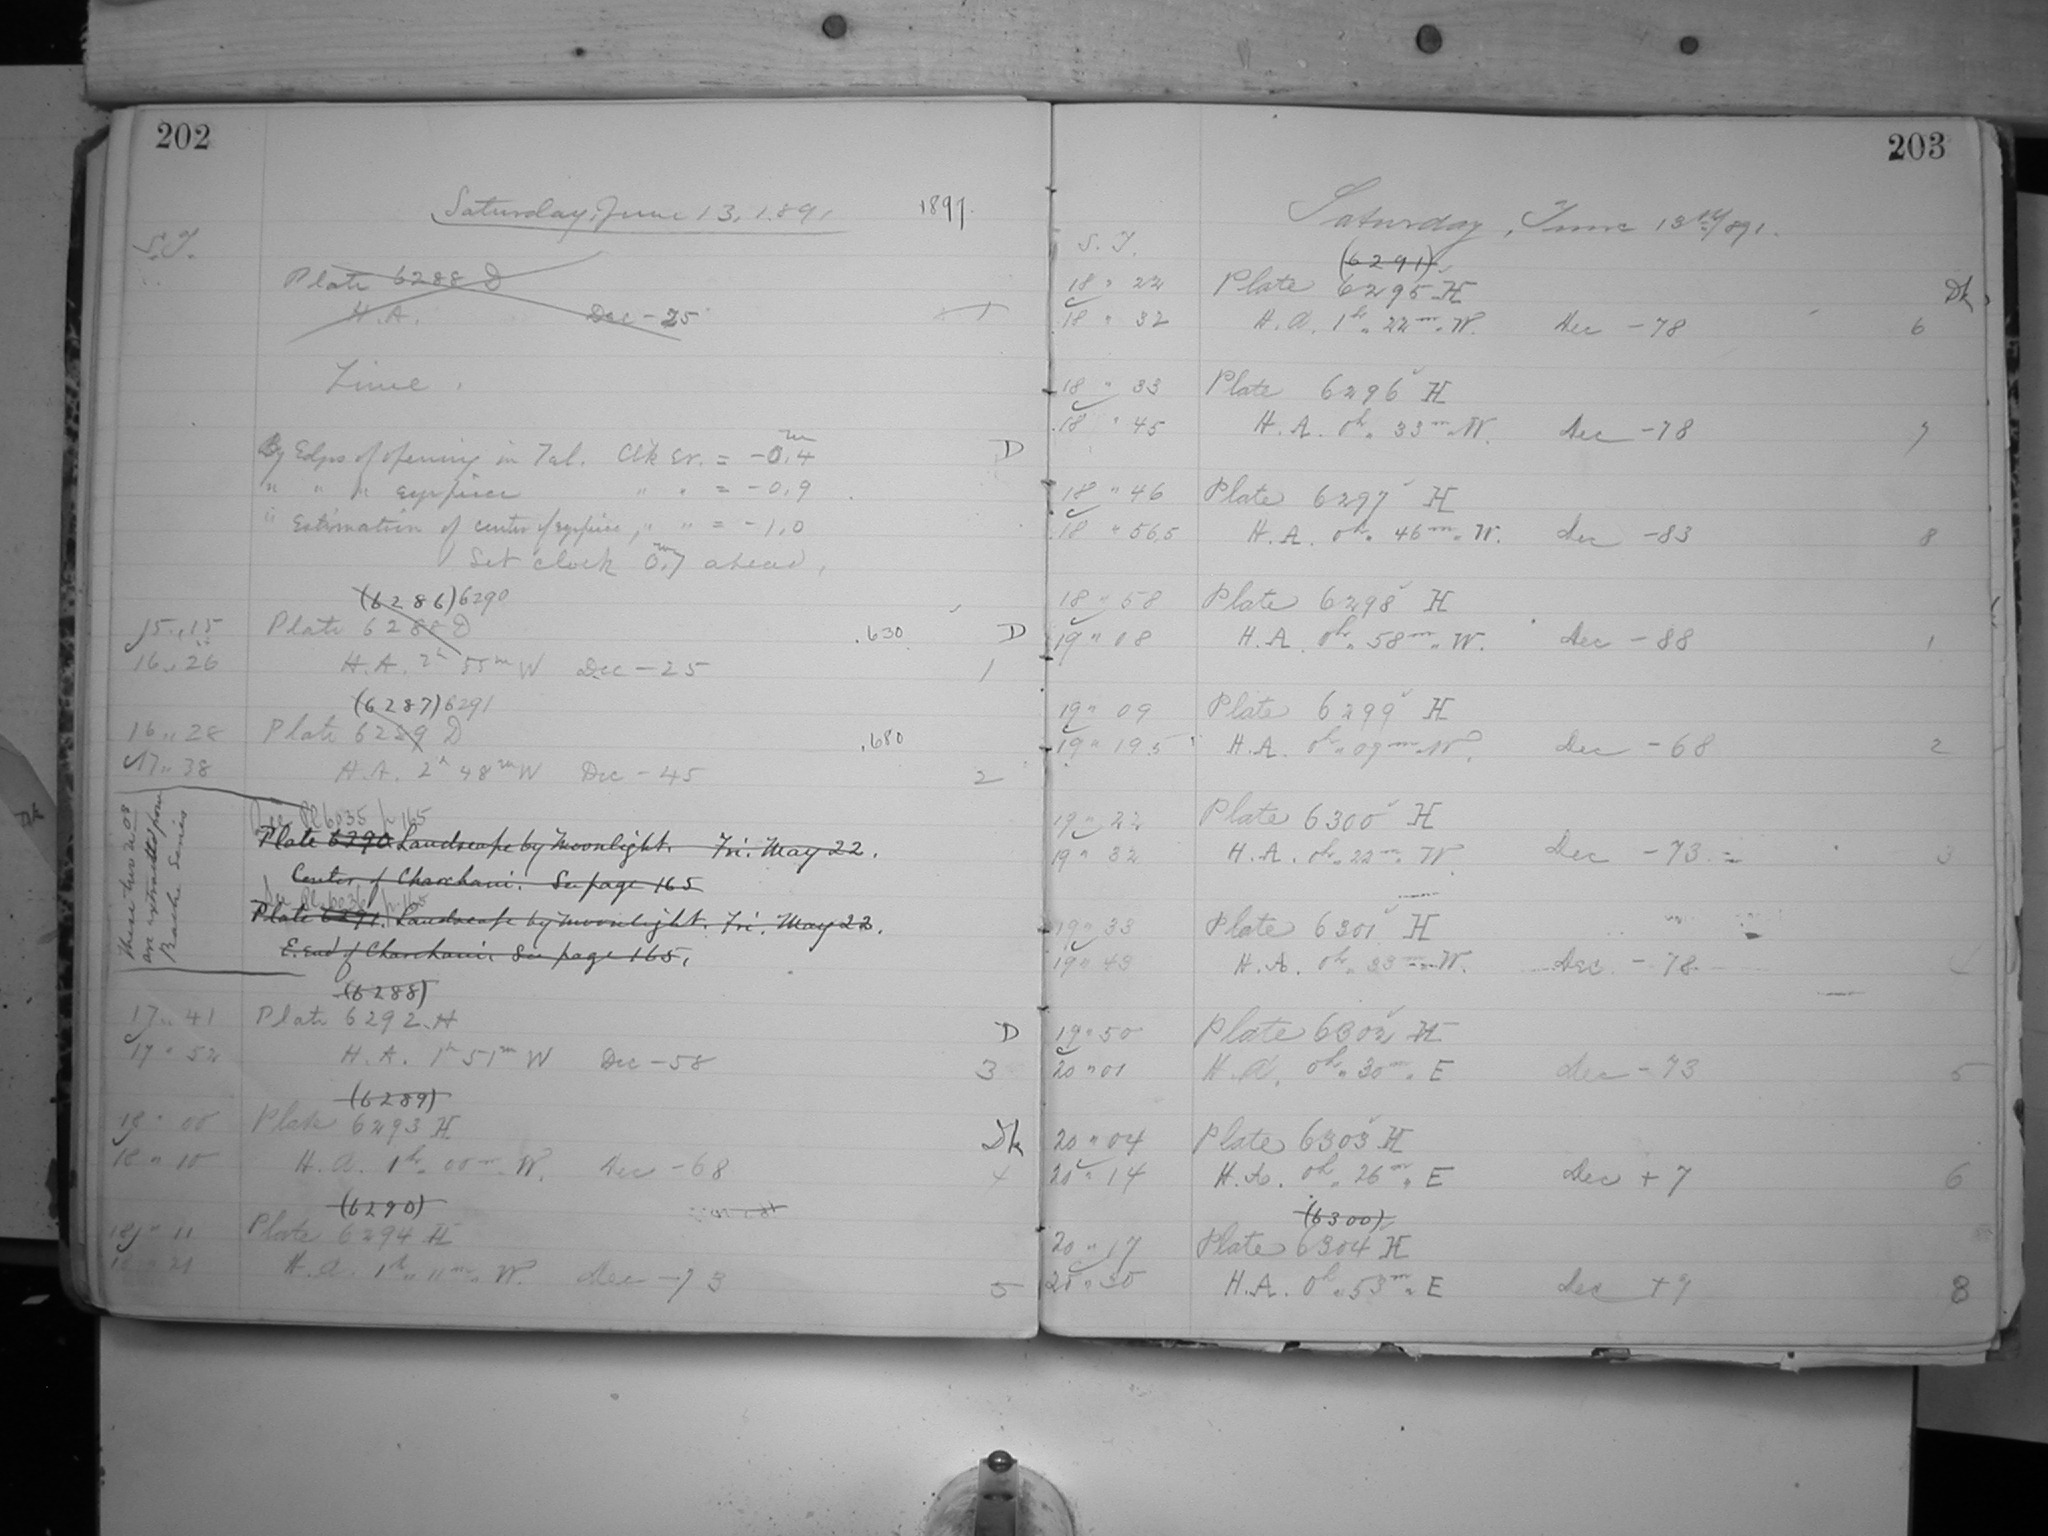 202
Saturday, June 13, 1891
1891.
S.T.
Plate 6288 D
H.A. Dec -25 1
Time.
By Edges of opening in Tal. Clk Er. = -0.4 m D
" " " eyepiece " " = -0.9
" Estimation of center of eyepiece, " " = -1.0
Set clock 0.7 m ahead.
(6286) 6290
15 " 15 Plate 6288 D .630 D
16 " 26 H.A. 2h 55m W Dec -25 1
(6287) 6291
16 " 28 Plate 6289 D .680
17 " 38 H.A. 2h 48m W Dec -45 2
These two nos
are extracted from
Bache Series
See Pl 6035 p 165
Plate 6290 Landscape by Moonlight. Fri. May 22.
Center of Charchani. See page 165
See Pl. 6036 p 165
Plate 6291. Landscape by moonlight. Fri. May 22.
E. end of Charchani. See page 165.
(6288)
17 " 41 Plate 6292 H D
17 " 52 H.A. 1h 51m W Dec -58 3
(6289)
18 " 00 Plate 6293 H Dk
18 " 10 H.A. 1h " 00m W. Dec -68 4
(6290)
18 " 11 Plate 6294 H
18 " 21 H.A. 1h " 11m " W. Dec -73 5
203
Saturday, June 13th 1891.
S.T.
(6291)
18 " 22 Plate 6295 H Dk
18 " 32 H.A. 1h " 22m " W. Dec -78 6
18 " 33 Plate 6296 H
18 " 45 H.A. 0h " 33m " W. Dec -78 7
18 " 46 Plate 6297 H
18 " 56.5 H.A. 0h " 46m " W. Dec -83 8
18 " 58 Plate 6298 H
19 " 08 H.A. 0h " 58m " W. Dec -88 1
19 " 09 Plate 6299 H
19 " 19.5 H.A. 0h " 09m " W. Dec -68 2
19 " 22 Plate 6300 H
19 " 32 H.A. 0h " 22m " W Dec -73 3
19 " 33 Plate 6301 H
19 " 43 H.A. 0h " 33m " W. Dec -78 4
19 " 50 Plate 6302 H
20 " 01 H.A. 0h " 30m " E Dec -73 5
20 " 04 Plate 6303 H
20 " 14 H.A. 0h " 26m " E Dec +7 6
(6300)
20 " 17 Plate 6304 H
20 " 30 H.A. 0h " 53m " E Dec +9 8